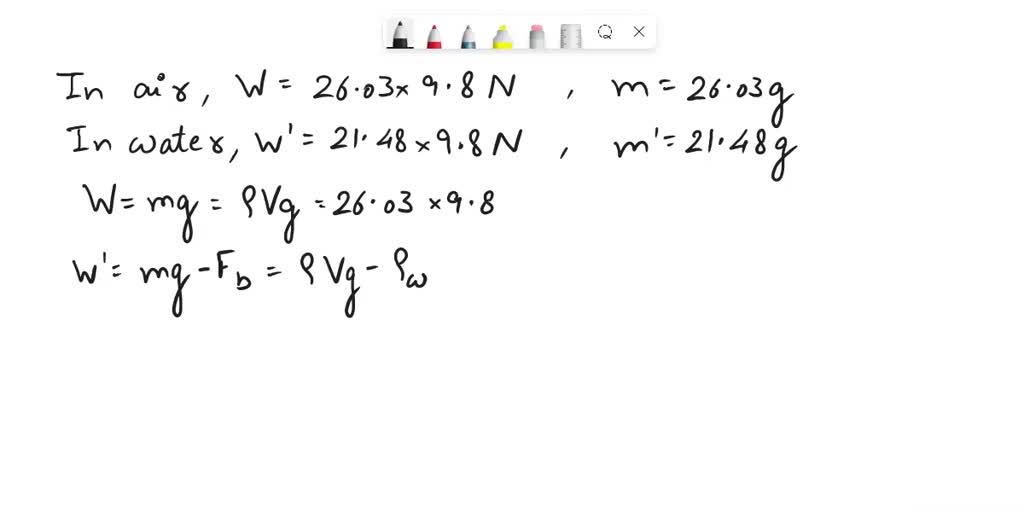 In air, W = 26.03 × 9.8 N , m = 26.03g
In water, W' = 21.48 × 9.8 N , m' = 21.48g
W = mg = ρVg = 26.03 × 9.8
W' = mg - F_b = ρVg - ρ_w